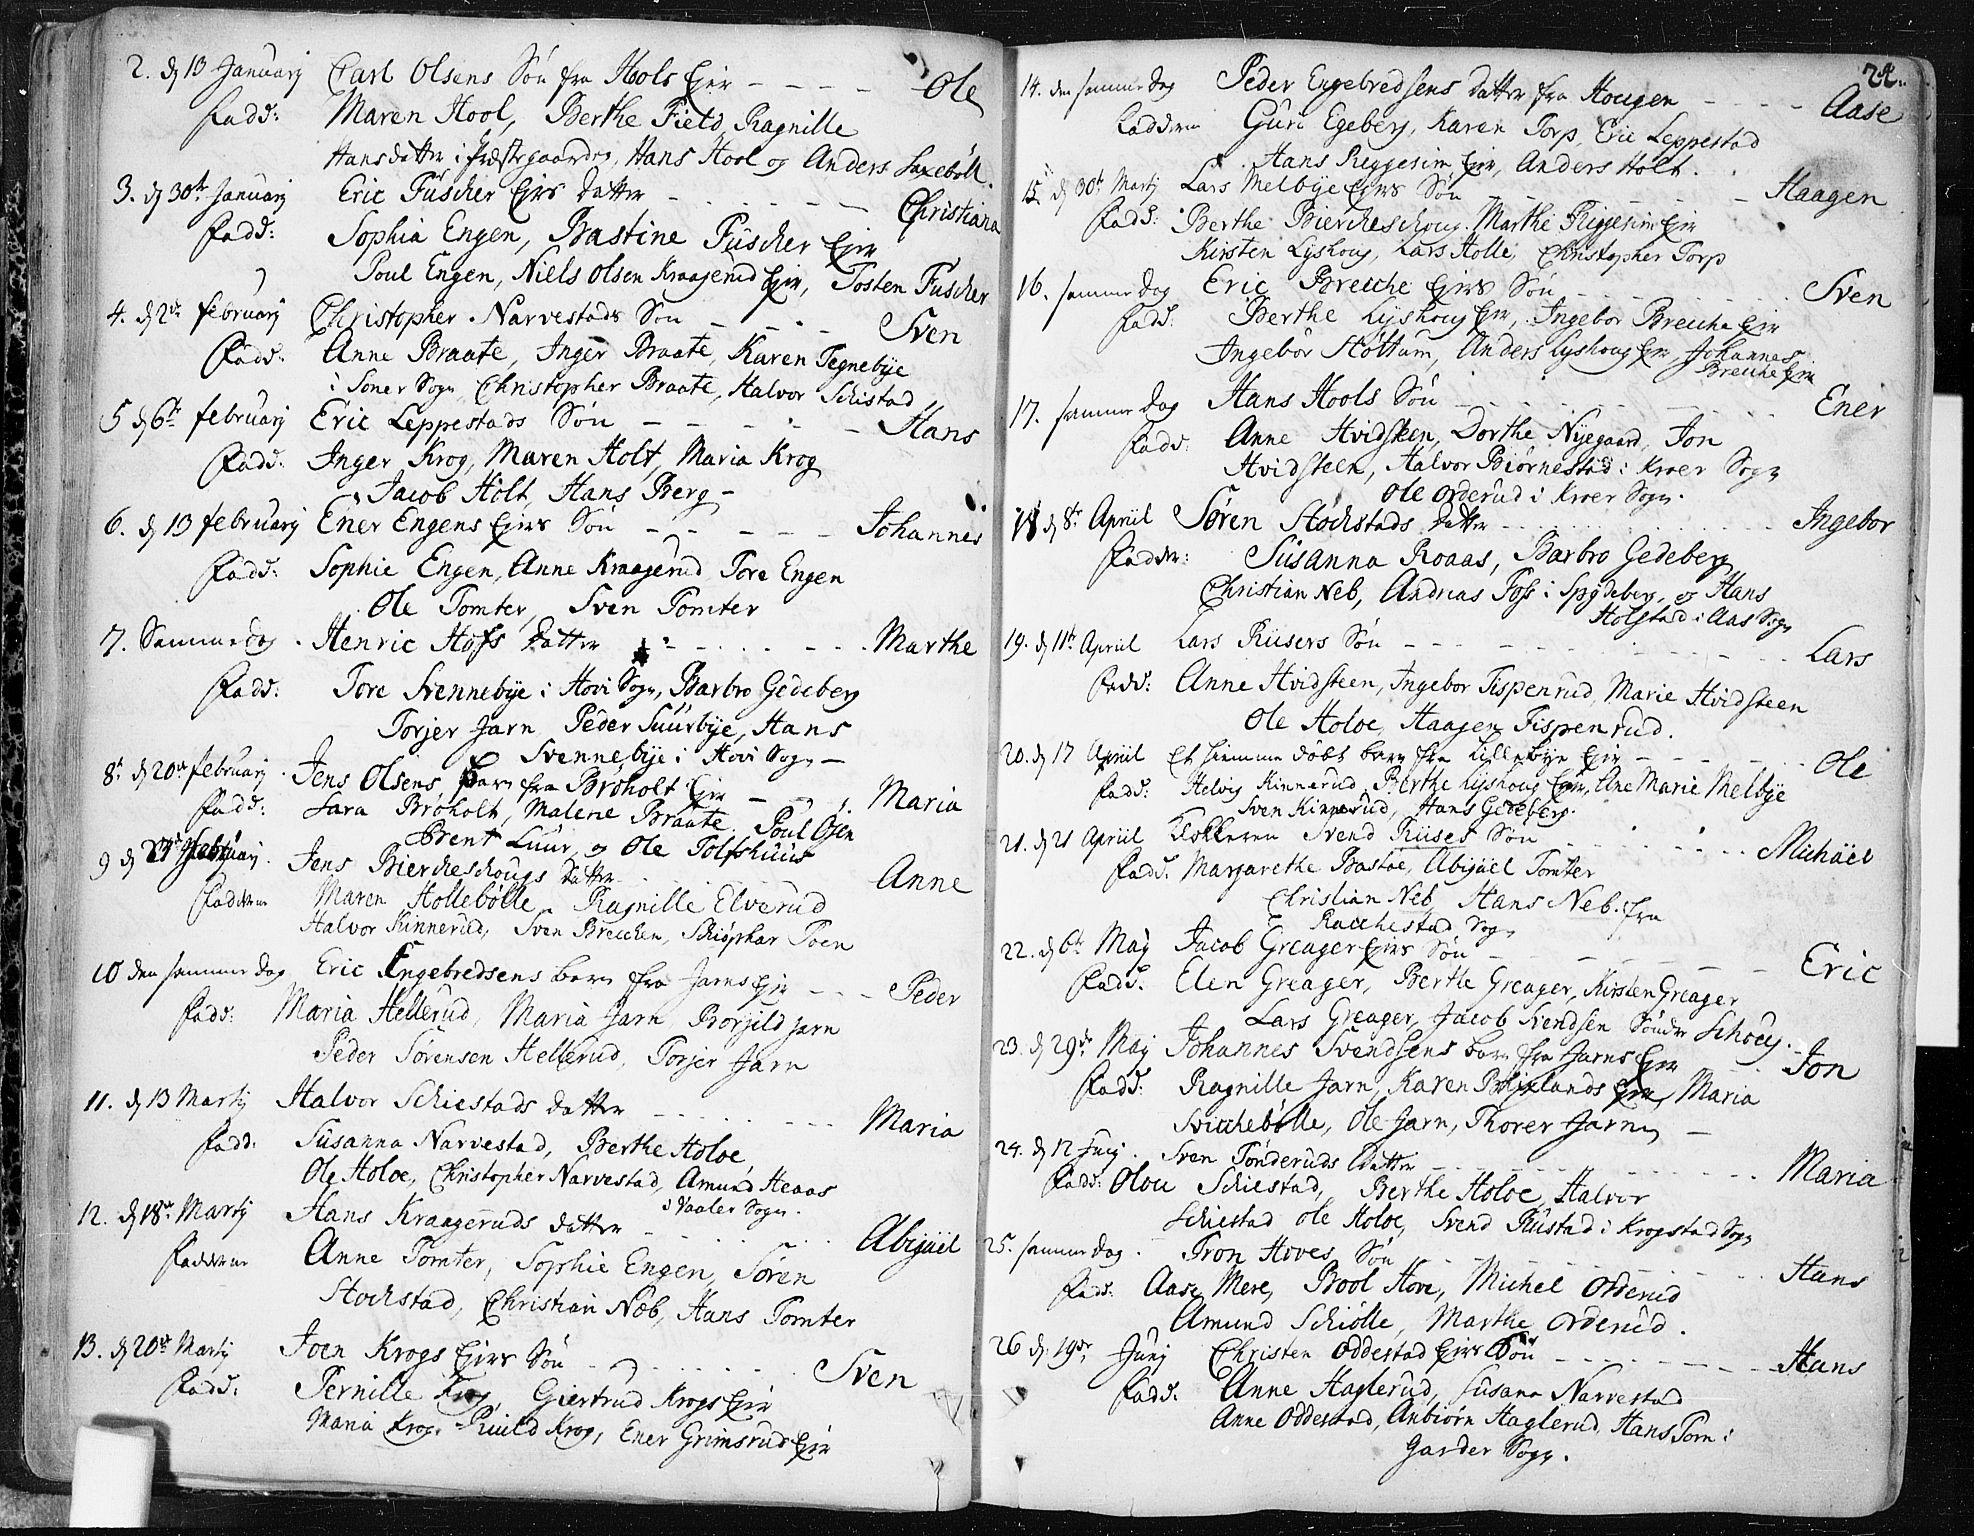 2. d 13 Januarij Carl Olsens Søn fra Hools Ejer - - - - Ole
Fadd: Maren Hool, Berthe Field, Ragnille
Hansdatter i Præstegaarden, Hans Hool og Anders Saxebøll.
3. d 30te Januarij Eric Füscher Ejers datter - - - - Christiana
Fadd: Sophia Engen, Bastine Füscher Ejer
Poul Engen, Niels Olsen Kraagerud Ejer, Tosten Füscher
4. d 2de februarij Christopher Narvestads Søn - - - Sven
Fadd: Anne Braate, Inger Braate, Karen Tegnebye
i Soner Sogn, Christopher Braate, Halvor Schistad
5 d 6te februarij Eric Leppestads Søn - - - - Hans
Fadd: Inger Krog, Maren Holt, Maria Krog
Jacob Holt, Hans Berg -
6. d 13 februarij Ener Engens Ejers Søn - - - - Johannes
Fadd: Sophie Engen, Anne Kraagerud, Tore Engen
Ole Tomter, Sven Tomter
7. Sammer dag. Henric Hofs datter - - - - Marthe
Fadd: Tore Svennebye i Hovi Sogn, Barbro Gedeberg
Torjer Jarn Peder Suurbye, Hans
Svennebye i Hovi Sogn -
8t d 20de februarij. Jens Olsens barn fra Brøholt Ejer - - - Maria
Fadd: Sara Brøholt, Malene Braate, Poul Osen
Brent Luur, og Ole Tolfshuus
9 d Februarij. Jens Biercheschougs datter - - - Anne
Fadderne Maren Hollebølle, Ragnille Elverud
Halvor Kinnerud, Sven Breichen, Toen
10 den sammer dag Eric Engebredsens barn fra Jarns Ejer - - - Peder
Fadd: Maria Hellerud, Maria Jarn, Børjild Jarn
Peder Sørensen Hellerud, Torjer Jarn
11. d 13 Martij Halvor Schiestads datter - - - - Maria
Fadd: Susanna Narvestad, Berthe Holoe,
Ole Holoe, Christopher Narvestad, Amund Heaas
i Vaaler Sogn.
12. d 18de Martij Hans Kraageruds datter - - - - Abigäel
Fadderne Anne Tomter, Sophie Engen, Søren
Stochstad, Christian Næb, Hans Tomter
13. d 20de Martij Joen Krogs Ejers Søn - - - - Sven
Fadd: Pernille Krog, Giertrud Krogs Ejer
Maria Krog, Krog, Ener Grimsrud Ejer
22.
14. den sammer dag Peder Engebredsens datter fra Hougen - - - - Aase
Fadderne Guri Egeberg, Karen Torp, Eric Leppestad
Hans Reggesim Ejer, Anders Holt.
15 d 30te Martij Lars Melbye Ejers Søn - - - - Haagen
Fadd: Berthe Biercheschoug, Marthe Riggesim Ejer
Kirsten Lyshoug, Lars Holle, Christopher Torp
16. sammer dag Eric Breiche Ejers Søn - - - - Sven
Fadd: Berthe Lyshoug Ejer, Ingebor Breiche Ejer
Ingebor Høttum, Anders Lyshoug Ejer, Johannes
Breiche Ejer
17. sammer dag Hans Hools Søn - - - - Ener
Fadd: Anne Hvidsteen, Dorthe Nijegaard, Jon
Hvidsteen, Halvor Biørnestad i Kroer Sogn
Ole Orderud i Kroer Sogn.
18 d 8te Apriil Søren Stochstads datter - - - - Ingebor
Fadder: Susanna Roaas, Barbro Gedeberg,
Christian Neb, Andreas Foss i Spydeberg, og Hans
Holstad i Aas Sogn
19. d 11te Apriil Lars Riisers Søn - - - - Lars
Fadd: Anne Hvidsteen, Ingebor Fispenrud, Marie Hvidsteen
Ole Holoe, Haagen Fispenrud.
20. d 17 Apriil Et hiemme døbt barn fra Lillebye Ejer - - - - Ole
Fadd: Helvig Kinnerud, Berthe Lyshoug Ejer, Ane Marie Melbye
Sven Kinnerud, Hans Gedeberg.
21. d 21 Apriil Klokkeren Svend Søn - - - - Michäel
Fadd: Margarethe Bastoe, Abigäel Tomter
Christian Neb, Hans Neb fra
Racchestad Sogn
22. d 6te Maij Jacob Greager Ejers Søn - - - - Eric
Fadd. Elen Greager, Berthe Greager, Kirsten Greager
Lars Greager, Jacob Svendsen Sønder Schoey.
23. d 29de Maij Johannes Svendsens barn fra Jarns Ejer - - - - Jon
Fadd: Ragnille Jarn, Karen Ejer, Maria
Svicchebølle, Ole Jarn, Thorer Jarn -
24. d 12 Junij. Sven Tønderuds datter - - - - Maria
Fadd: Olou Schiestad, Berthe Holoe, Halvor
Schiestad Ole Holoe, Svend Rustad i Krogstad Sogn
25. sammer dag. Tron Hoves Søn - - - - Hans
Fadd: Aase Mere, Bool Hove, Michel Orderud
Amund Schiolle, Marthe Orderud.
26 d. 19de Junij Christen Oddestad Ejers Søn - - - - Hans
Fadd: Anne Haglerud, Susana Narvestad
Anne Oddestad, Anbiørn Haglerud, Hans Torn i
Garder Sogn.